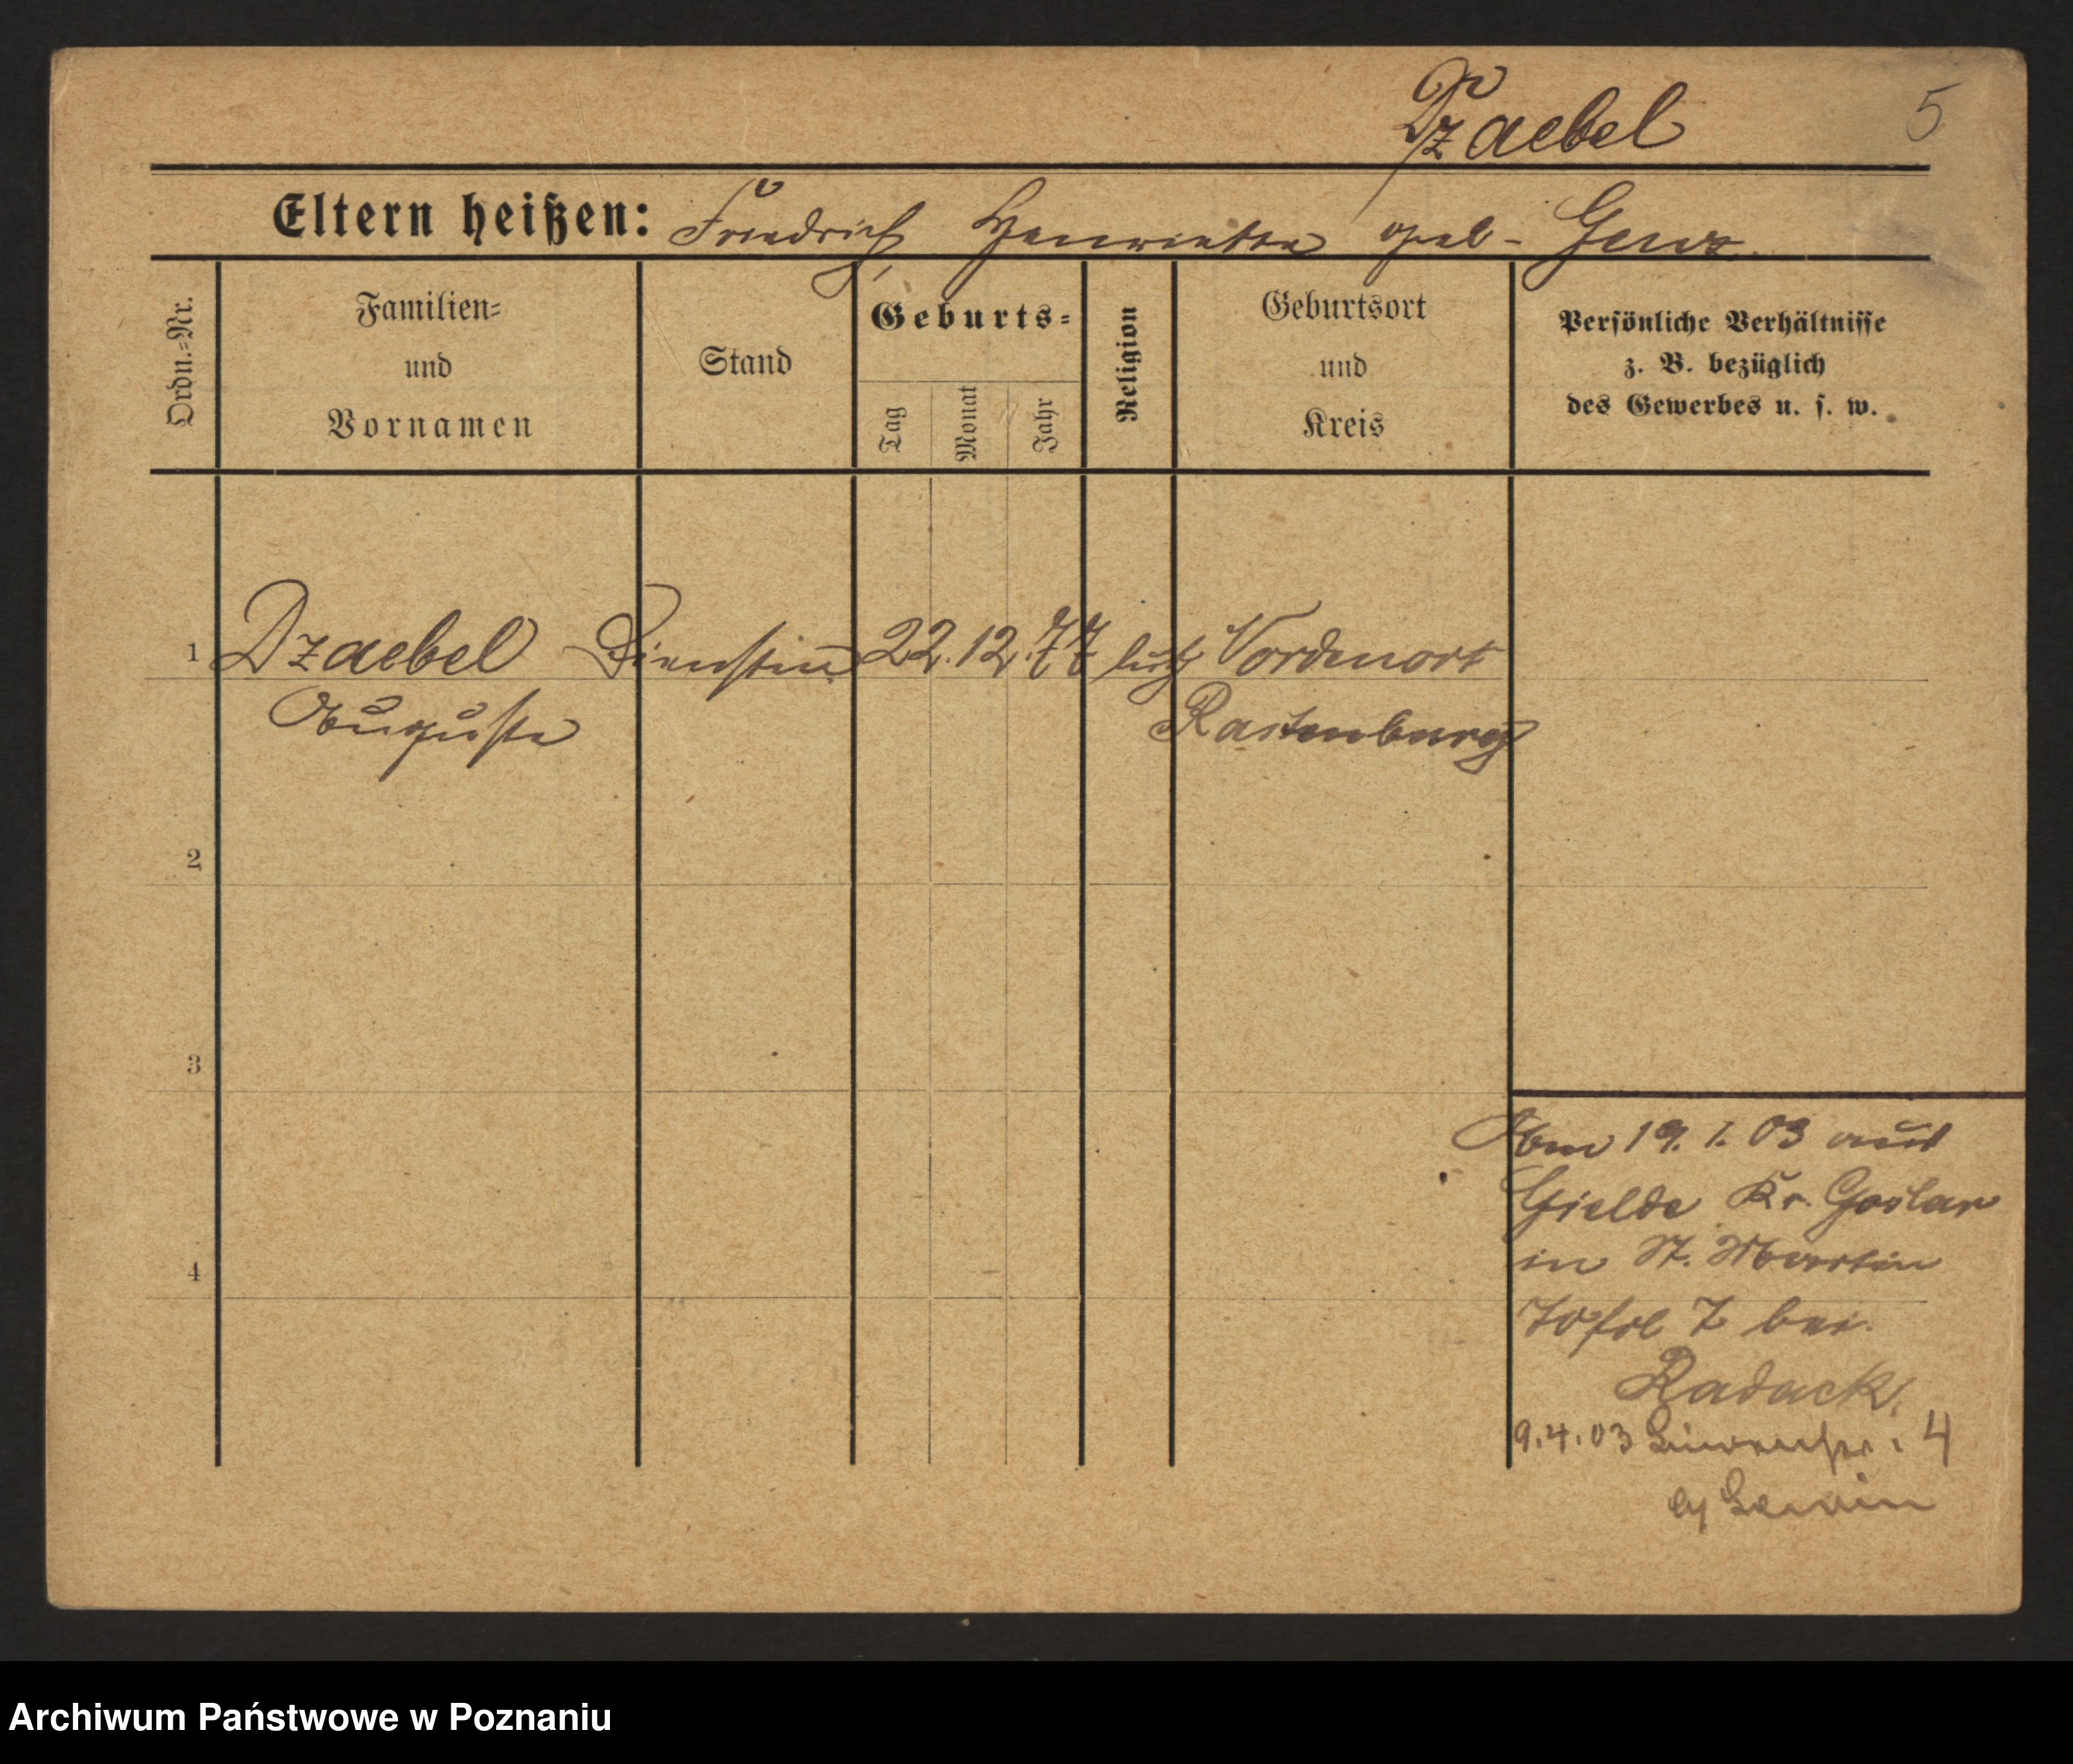 Dzaebel 5
Eltern heißen: Friedrich, Henriette geb. Genz.
Ordn.-Nr.
Familien-
und
Vornamen
Stand
Geburts-
Tag
Monat
Jahr
Religion
Geburtsort
und
Kreis
Persönliche Verhältnisse
z. B. bezüglich
des Gewerbes u. s. w.
1 Dzaebel Dienstm 22. 12. 77 luth Nordenort
Auguste Rastenburg
2
3
4
Am 19. 1. 03 aus
Gielde Kr. Goslar
in St. Martin
7 bei
Radack.
9.4.03 4
Archiwum Państwowe w Poznaniu